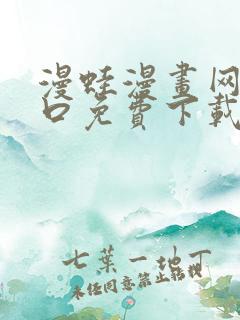 漫蛙漫畫网
口免費下載
七葉一地丁
未任同意禁止転视